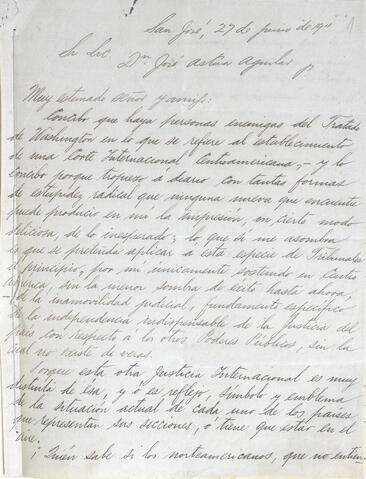 San José, 27 de junio de 191
Sr. Lic. Dn José Astúa Aguilar
Muy estimado señor y amigo:
Concibo que haya personas enemigas del Tratado
de Washington en lo que se refiere al establecimiento
de una Corte Internacional Centroamericana, y lo
concibo porque tropiezo a diario con tantas formas
de estupidez radical que ninguna nueva que encuentre
puede producir en mi la impresión, en cierto modo
deliciosa, de lo inesperado; lo que sí me asombra
es que se pretenda aplicar a esta especie de Tribunales
el principio, por mi unicamente sostenido en Centro
América, sin la menor sombra de éxito hasta ahora,
de la inamovilidad judicial, fundamento específico
de la independencia indispensable de la Justicia del
país con respecto a los otros Poderes Públicos, sin la
cual no existe de veras.
Porque esta otra Justicia Internacional es muy
distinta de esa, y ó es reflejo, símbolo y emblema
de la situación actual de cada uno de los paises
que representan sus secciones, ó tiene que estar en el
aire.
¡ Quién sabe si los norteamericanos, que no entien-